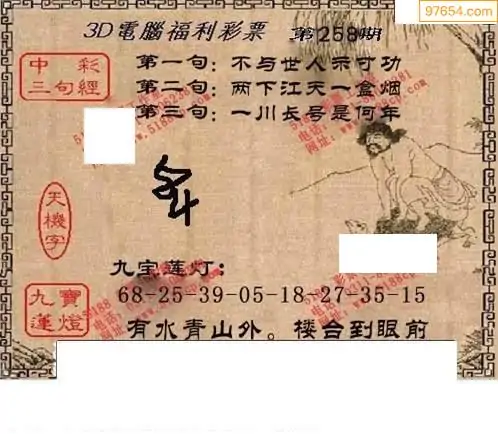 97654.com
3D電腦福利彩票 第258期
中彩
三句經
第一句：不与世人示寸功
第二句：两下江天一盒烟
第三句：一川长号是何年
天機字
九宝莲灯：
68-25-39-05-18-27-35-15
九寶
蓮燈
有水青山外。楼台到眼前